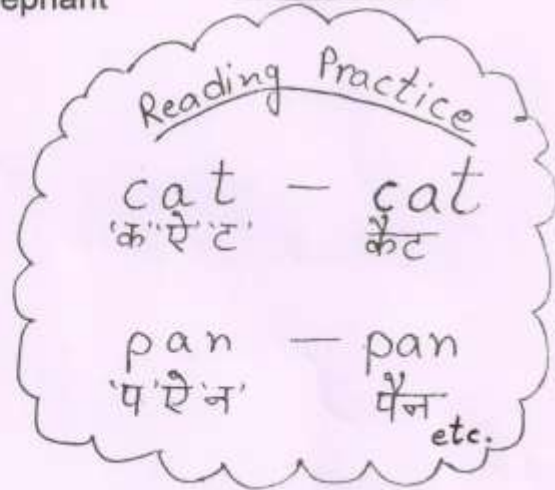 Reading Practice
cat – cat
'क' 'ऐ' 'ट' कैट
pan – pan
'प' 'ऐ' 'न' पैन
etc.